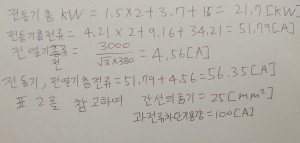 전동기총 kW = 1.5×2 + 3.7 + 15 = 21.7 [kW]
전동기총전류 = 4.21×2 + 9.16 + 34.21 = 51.79 [A]
전열기총류전 = 3000/√3×380 = 4.56 [A]
전동기, 전열기총전류 = 51.79 + 4.56 = 56.35 [A]
표 2를 참고하여 간선의굵기 = 25 [mm²]
과전류차단기용량 = 100 [A]